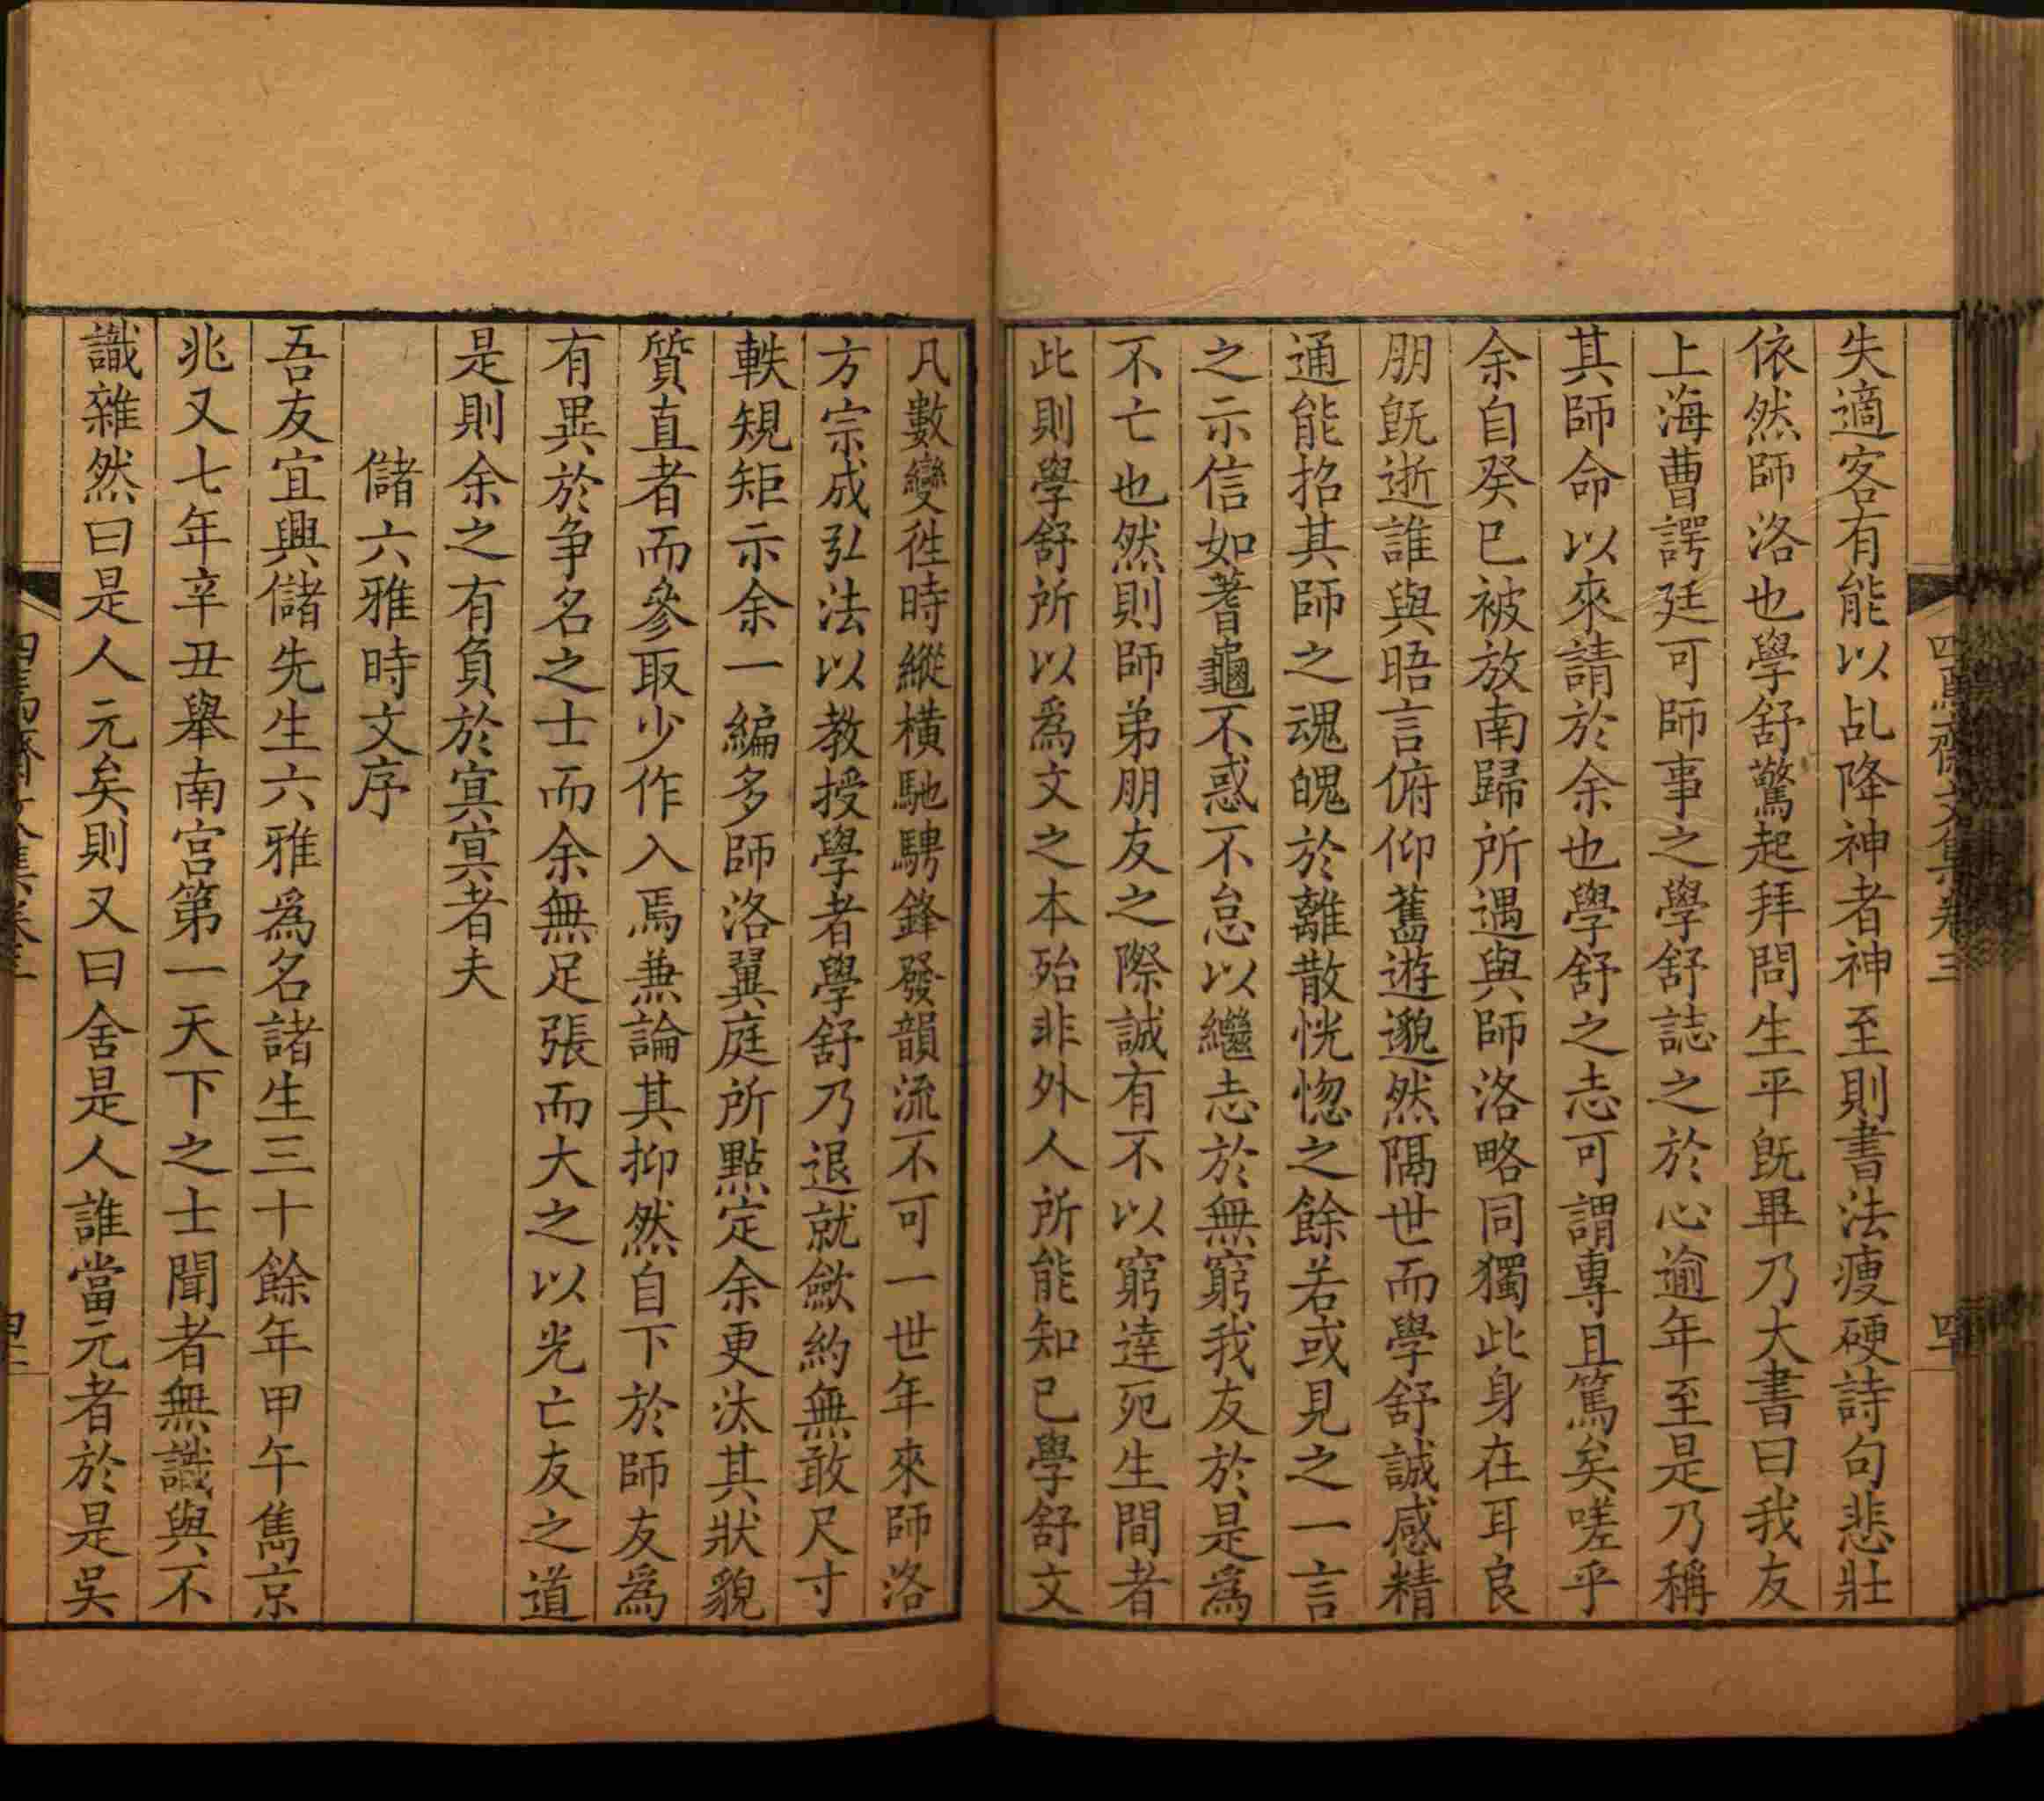 失適客有能以乩降神者神至則書法瘦硬詩句悲壯
依然師洛也學舒驚起拜問生平旣畢乃大書曰我友
上海曹諤廷可師事之學舒誌之於心逾年至是乃稱
其師命以來請於余也學舒之志可謂專且篤矣嗟乎
余自癸巳被放南歸所遇與師洛略同獨此身在耳良
朋旣逝誰與晤言俯仰舊遊邈然隔世而學舒誠感精
通能招其師之魂魄於離散恍惚之餘若或見之一言
之示信如蓍龜不惑不怠以繼志於無窮我友於是爲
不亡也然則師弟朋友之際誠有不以窮達死生間者
此則學舒所以爲文之本殆非外人所能知已學舒文
凡數變徃時縱橫馳騁鋒發韻流不可一世年來師洛
方宗成弘法以教授學者學舒乃退就歛約無敢尺寸
軼規矩示余一編多師洛翼庭所點定余更汰其狀貌
質直者而參取少作入焉兼論其抑然自下於師友爲
有異於争名之士而余無足張而大之以光亡友之道
是則余之有負於冥冥者夫
儲六雅時文序
吾友宜興儲先生六雅爲名諸生三十餘年甲午雋京
兆又七年辛丑舉南宮第一天下之士聞者無識與不
識雜然曰是人元矣則又曰舍是人誰當元者於是吳